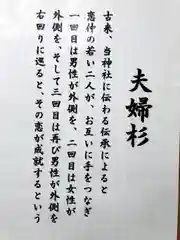 夫婦杉
古来、当神社に伝わる伝承によると
恋仲の若い二人が、お互いに手をつなぎ
一回目は男性が外側を、二回目は女性が
外側を、そして三回目は再び男性が外側を
右回りに巡ると、その恋が成就するという